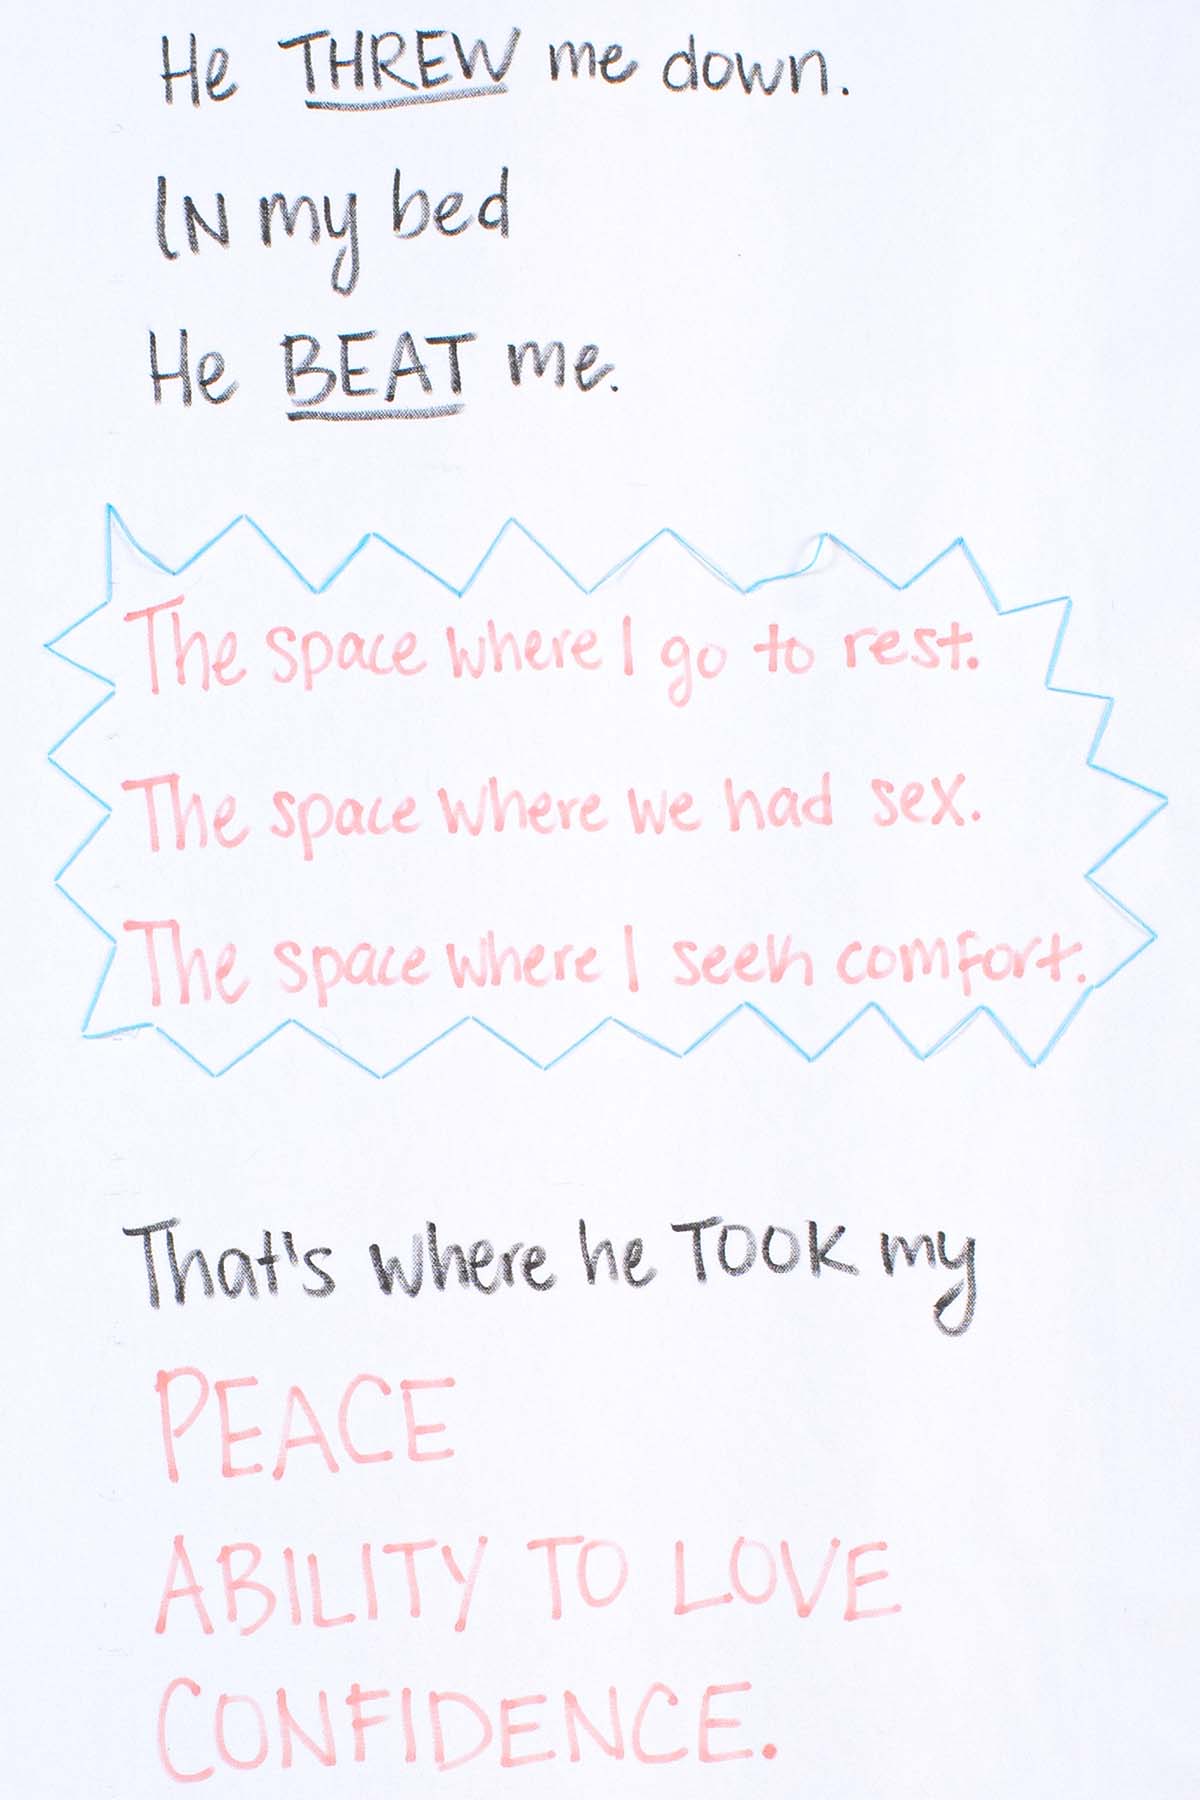 He THREW me down.
IN my bed
He BEAT me.
The space where I go to rest.
The space where we had sex.
The space where I seek comfort.
That's where he TOOK my
PEACE
ABILITY TO LOVE
CONFIDENCE.